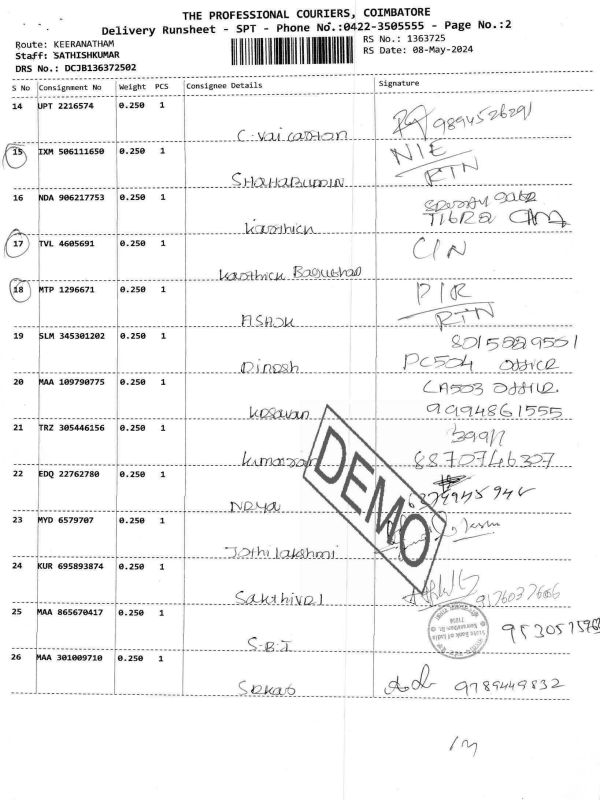 THE PROFESSIONAL COURIERS, COIMBATORE
Delivery Runsheet - SPT - Phone No.:0422-3505555 - Page No.:2
Route: KEERANATHAM
RS No.: 1363725
Staff: SATHISHKUMAR
RS Date: 08-May-2024
DRS No.: DCJB136372502
S No Consignment No Weight PCS Consignee Details Signature
14 UPT 2216574 0.250 1
9894526291
15 IXM 506111650 0.250 1 NIE
SHAHABUDDIN RTN
16 NDA 906217753 0.250 1
Karthick
17 TVL 4605691 0.250 1 CIN
Karthick
18 MTP 1296671 0.250 1 PIR
ASHOK RTN
19 SLM 345301202 0.250 1 8015229551
Dinesh PC504 office
20 MAA 109790775 0.250 1 CA503 office
Kesavan 9994861555
21 TRZ 305446156 0.250 1
8870746327
22 EDQ 22762780 0.250 1
Neya
23 MYD 6579707 0.250 1
Jothilakshmi
24 KUR 695893874 0.250 1
Sakthivel
25 MAA 865670417 0.250 1
S.B.I
State Bank of India
26 MAA 301009710 0.250 1
9789449832
DEMO